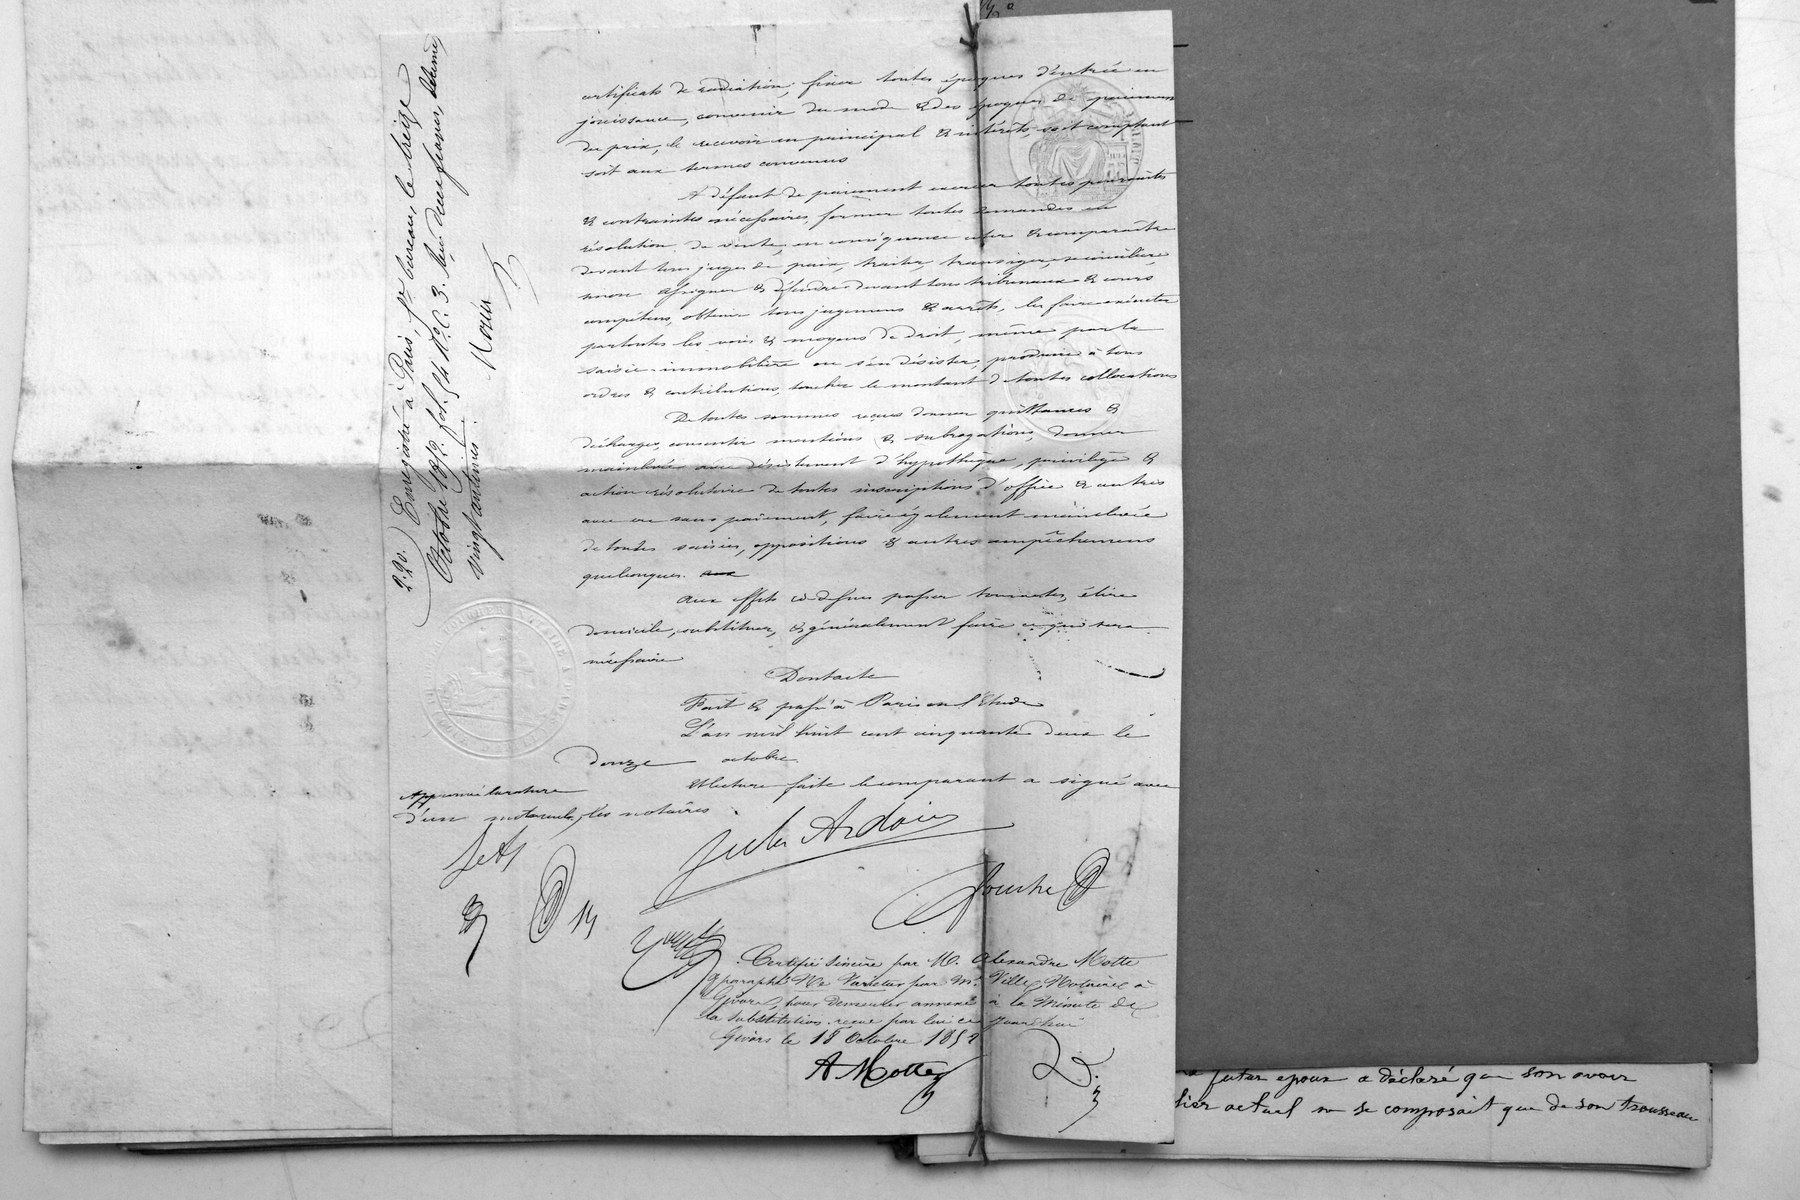 certificats de radiation, fixer toutes époques d'entrée en
jouissance, convenir du mode & des époques de paiement
du prix, le recevoir en principal & intérêts, soit comptant
soit aux termes convenus
A défaut de paiement exercer toutes poursuites
& contraintes nécessaires, former toutes demandes en
résolution de vente, en conséquence citer & comparaître
devant tous juges de paix, traiter, transiger, se concilier,
sinon assigner & défendre devant tous tribunaux & cours
compétens, obtenir tous jugemens & arrêts, les faire exécuter
par toutes les voies & moyens de droit, même par la
saisie immobilière ou s'en désister, produire à tous
ordres & contributions, toucher le montant de toutes collocations
De toutes sommes reçues donner quittances &
décharges, consentir mentions & subrogations, donner
mainlevée avec désistement d'hypothèque, privilège &
action résolutoire de toutes inscriptions d'office & autres
avec ou sans paiement, faire également mainlevée
de toutes saisies, oppositions & autres empêchemens
quelconques.
Aux effets ci-dessus passer tous actes, élire
domicile, substituer, & généralement faire ce qui sera
nécessaire
Dont acte
Fait & passé à Paris en l'Etude
L'an mil huit cent cinquante deux le
douze octobre
Et lecture faite le comparant a signé avec
les notaires
Approuvé la rature
d'un mot nul
Jules Ardoin
Fourchy
Certifié sincère par M. Alexandre Motte
& paraphé Ne Varietur par Me Ville, Notaire à
Givors, pour demeurer annexé à la Minute de
la substitution reçue par lui ce jourd'hui
Givors le 18 Octobre 1852
A Motte
2.20. Enregistré à Paris, 1er bureau, le treize
Octobre 1852, fol. 54 Ro C. 3. Reçu deux francs, décime
vingt centimes.
futur epoux a déclaré que son avoir
actuel ne se composait que de son trousseau